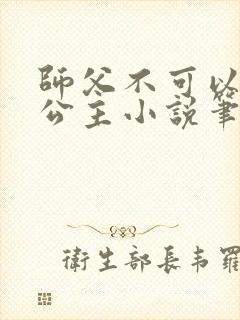 師父不可以
公主小說筆
衛生部長韋羅